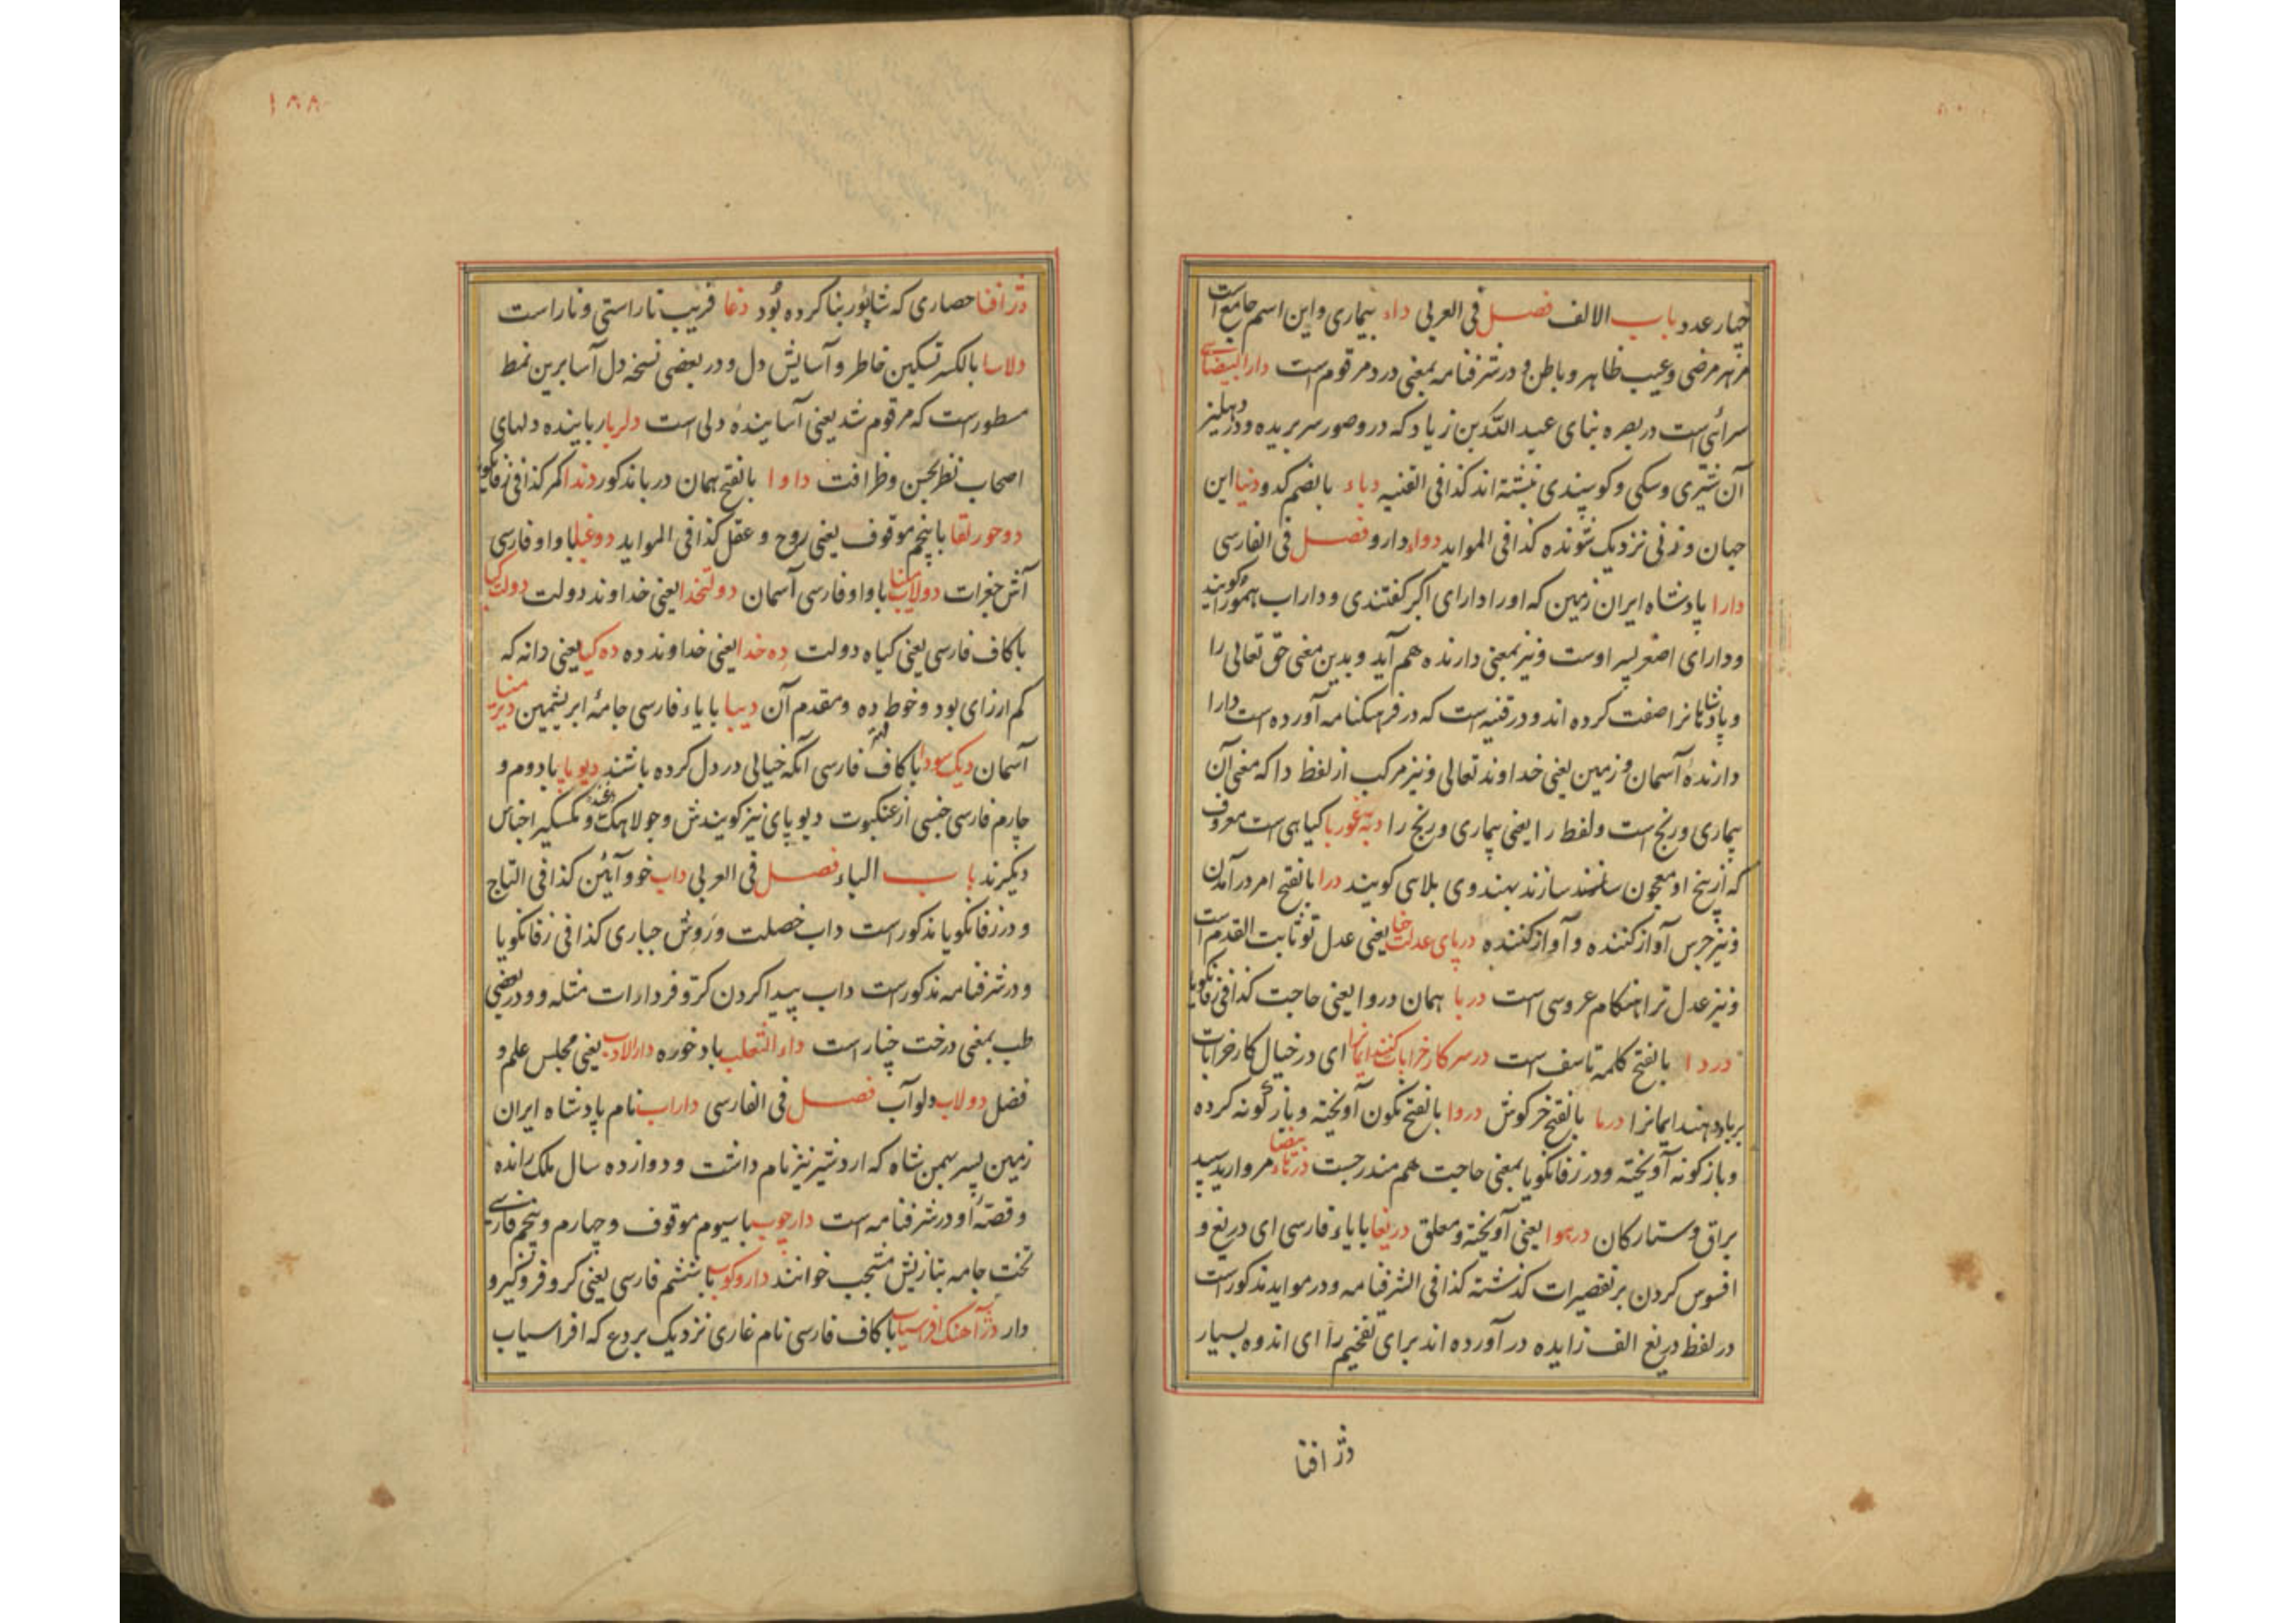 چهار عدد باب الالف فصل فی العربی داء بیماری و این اسم جامع است
مر هر مرضی و عیب ظاهر و باطن و در شرفنامه بمعنی درد مرقوم است دار البیضا
سرائی است در بصره بنای عبید الله بن زیاد که درو صور سر بریده و در دهلیز
آن شیری و سکی و کوسپندی نبشته اند کذا فی القنیه دباء بالضم کدو دنیا این
جهان و زنی نزدیک شونده کذا فی الموابد دواء دارو فصل فی الفارسی
دارا پادشاه ایران زمین که او را دارای اکبر کفتندی و داراب هم او را کویند
و دارای اصغر پسر اوست و نیز بمعنی دارنده هم آید و بدین معنی حق تعالی را
و پادشاهانرا صفت کرده اند و در قنیه است که در فرهنکنامه آورده است دارا
دارندهٔ آسمان و زمین یعنی خداوند تعالی و نیز مرکب از لفظ دا که معنی آن
بیماری و رنج است و لفظ را یعنی بیماری و رنج را کیاهی است معروف
که از بیخ او معجون سازند بهندوی بلاسی کویند درا بالفتح امر در آمدن
و نیز جرس آواز کننده و آواز کننده در پای عدلت یعنی عدل تو ثابت القدم است
و نیز عدل ترا هنکام عروسی است دربا همان دروا یعنی حاجت کذا فی زفانکویا
دردا بالفتح کلمه تاسف است در سر کار خرابات کنند ایمانرا ای در خیال کار خرابات
برباد دهند ایمانرا درما بالفتح خرکوش دروا بالفتح نکون آویخته و باژکونه کرده
و بازکونه آویخته و در زفانکویا بمعنی حاجت هم مندرجست بیضا مروارید سپید
براق و ستارکان در هوا یعنی آویخته و معلق دریغا با یاء فارسی ای دریغ و
افسوس کردن بر تقصیرات کذشته کذا فی الشرفنامه و در موابد مذکور است
در لفظ دریغ الف زایده در آورده اند برای تفخیم را ای اندوه بسیار
دژ افنا
۱۸۸
دژ افنا حصاری که شاپور بنا کرده بُود دغا فریب ناراستی و ناراست
دلاسا بالکسر تسکین خاطر و آسایش دل و در بعضی نسخه دل آسا برین نمط
مسطور است که مرقوم شد یعنی آسایندهٔ دلی است دلربا ربایندهٔ دلهای
اصحاب نظر بحسن و ظرافت داوا بالفتح همان دربا مذکور دندا کمر کذا فی زفانکویا
دو حور لقا با پنجم موقوف یعنی روح و عقل کذا فی الموابد دوغبا با واو فارسی
آش جغرات دولاب مینا با واو فارسی آسمان دولتخدا یعنی خداوند دولت دولت کیا
با کاف فارسی یعنی کیاه دولت ده خدا یعنی خداوند ده ده کیا یعنی دانه که
کم ارزای بود و خوط ده و مقدم آن دیبا با یاء فارسی جامهٔ ابریشمین دیر مینا
آسمان دیک سودا با کاف فارسی آنکه خیالی در دل کرده باشند دیوپا با دوم و
چارم فارسی جنسی از عنکبوت دیوپای نیز کویندش و جولاهک و مکسکیر اجناس
دیکرند باب الباء فصل فی العربی داب خو و آیین کذا فی التاج
و در زفانکویا مذکور است داب خصلت و رَوِش جباری کذا فی زفانکویا
و در شرفنامه مذکور است داب پیدا کردن کرّ و فر دارات مثله و در بعضی
طب بمعنی درخت چنار است داء الثعلب باد خوره دار الادب یعنی مجلس علم و
فضل دولاب دلو آب فصل فی الفارسی داراب نام پادشاه ایران
زمین پسر بهمن شاه که اردشیر نیز نام داشت و دوازده سال ملک رانده
و قصّهٔ او در شرفنامه است دارچوب با سیوم موقوف و چهارم و پنجم فارسی
تخت جامه بتازیش مشجب خوانند دار و کوب با ششم فارسی یعنی کر و فر و کیر و
دار دژ آهنک افراسیاب با کاف فارسی نام غاری نزدیک بردع که افراسیاب